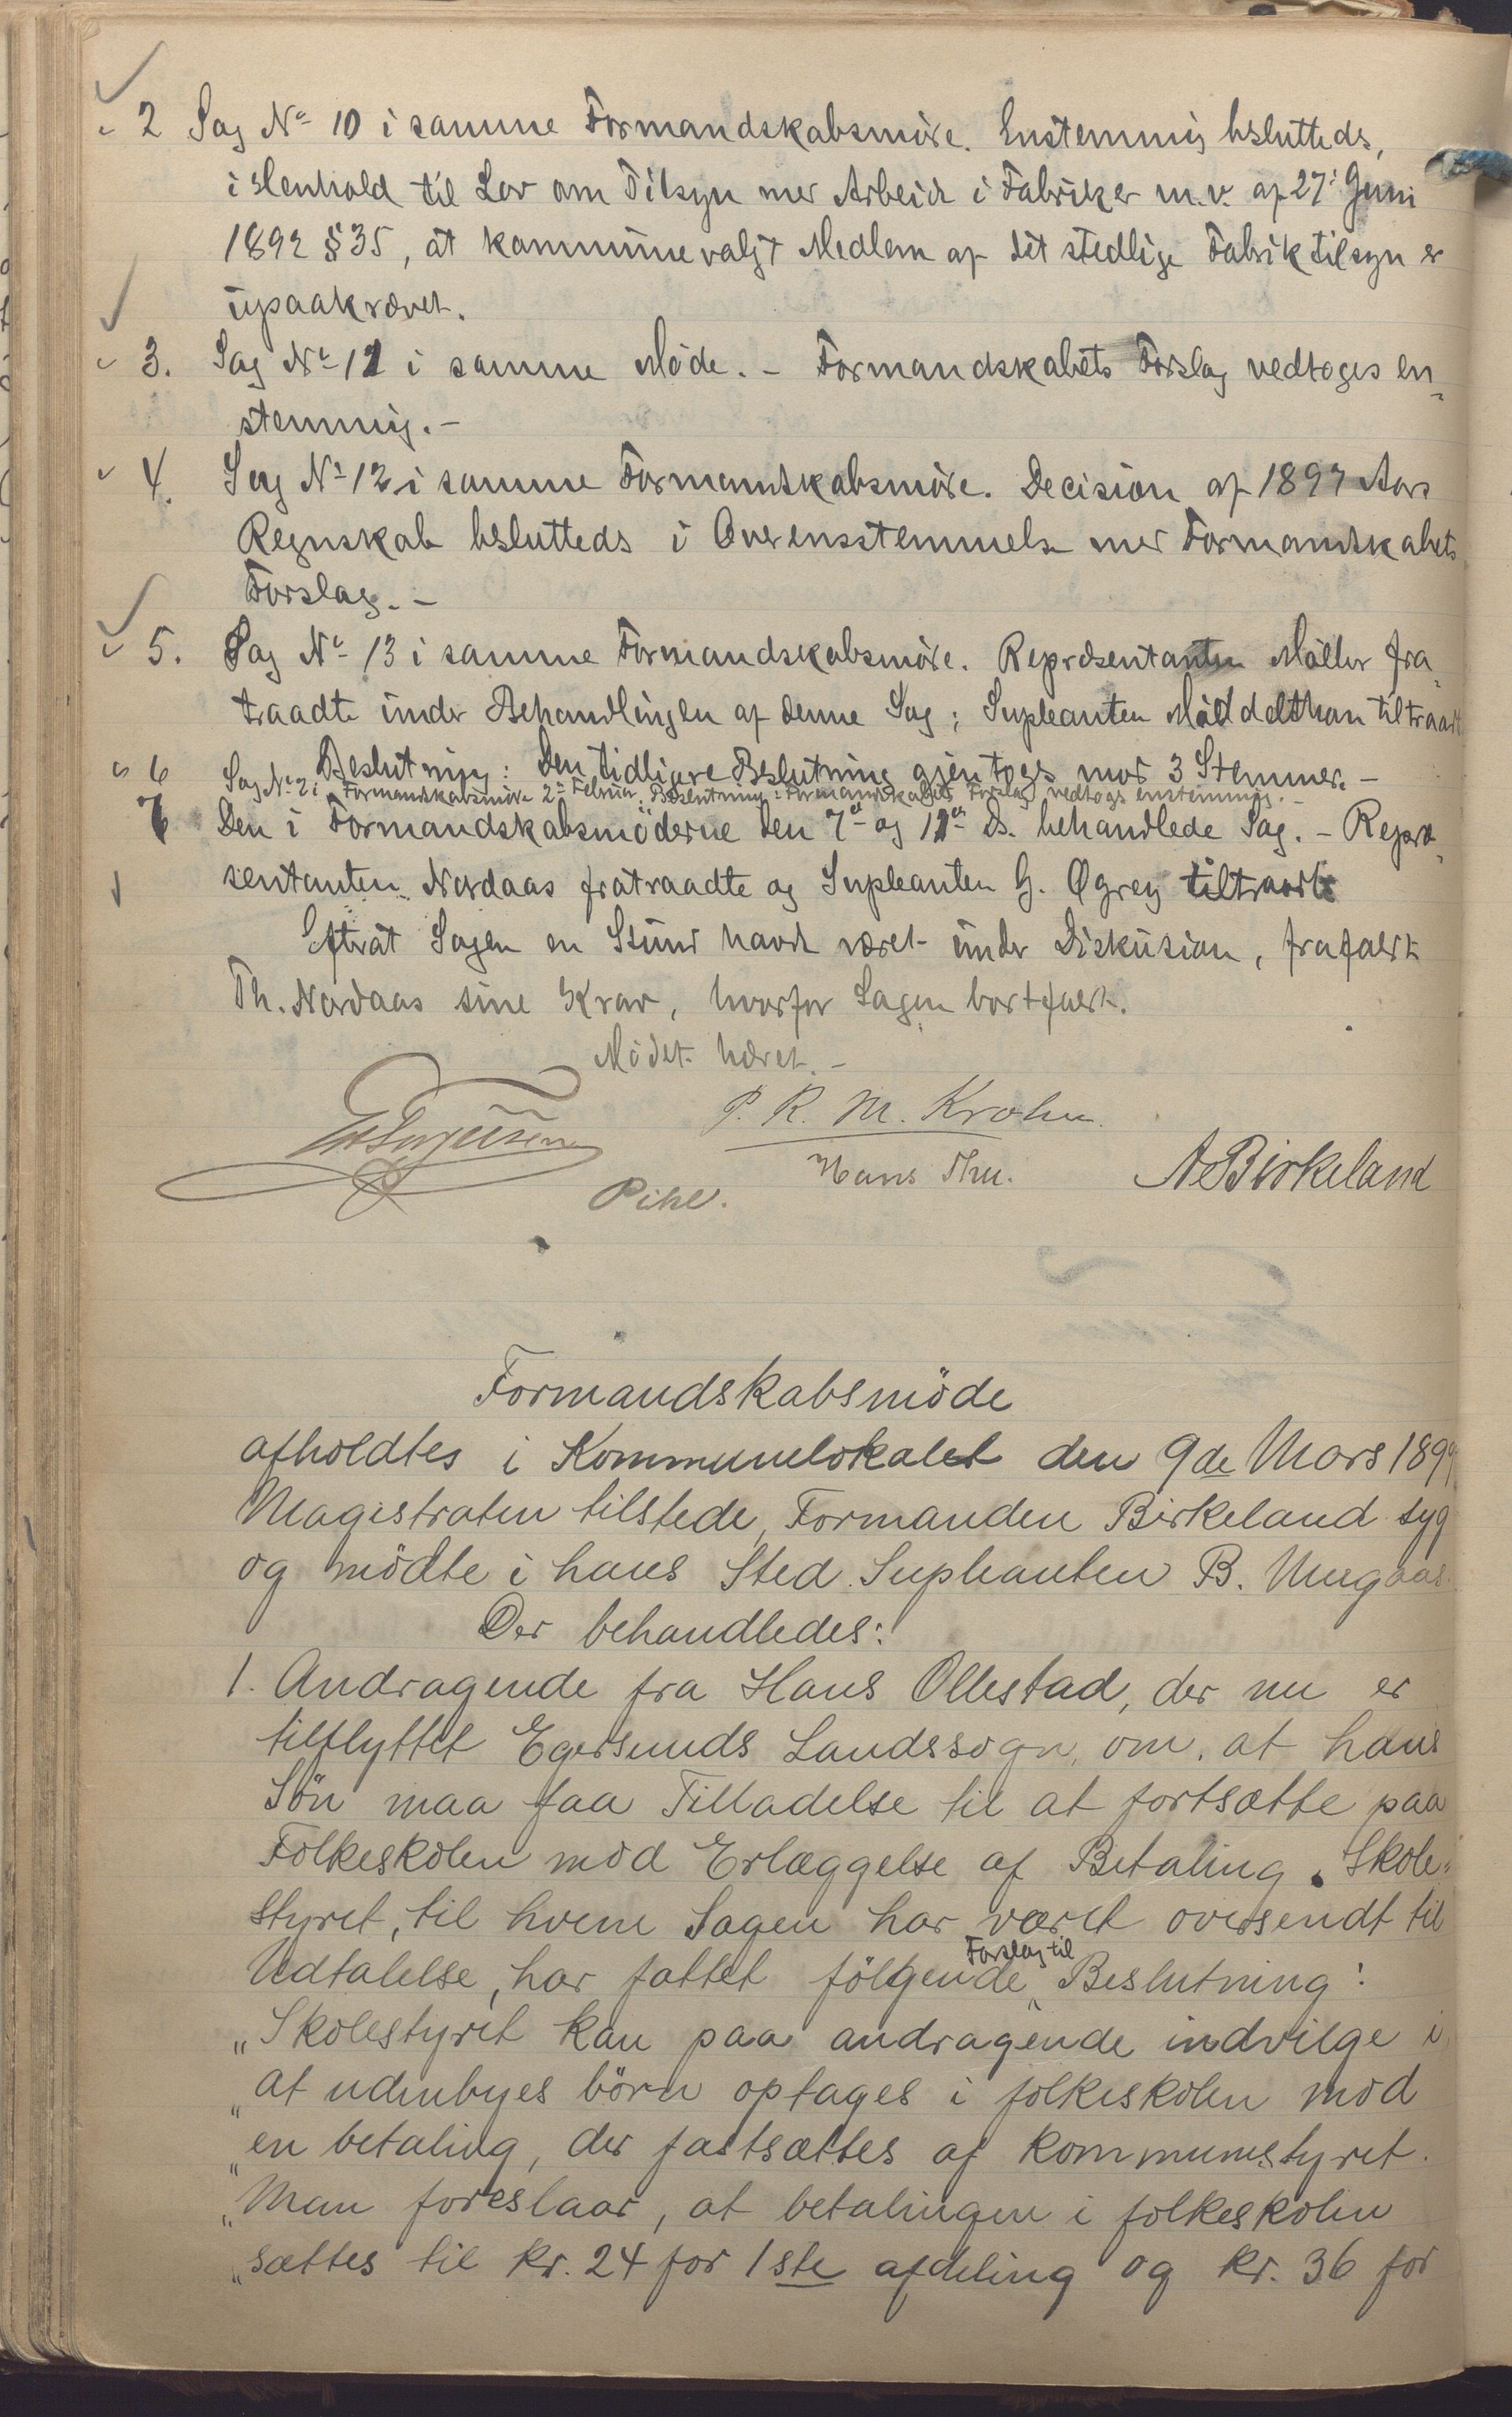 2 Sag No 10 i samme Formandskabsmøde. Enstemmig beslutteds,
i Henhold til Lov om Tilsyn med Arbeide i Fabriker m.v. af 27' Juni
1892 § 35, at kommunevalgt Medlem af det stedlige Fabriktilsyn er
upaakrævet.
3. Sag No 11 i samme Møde. – Formandskabets Forslag vedtoges en-
stemmig. –
4. Sag No 12 i samme Formandskabsmøde. Decision af 1897 Aars
Regnskab beslutteds i Overensstemmelse med Formandskabets
Forslag. –
5. Sag No 13 i samme Formandskabsmøde. Repræsentanten Møller fra-
traadte under Behandlingen af denne Sag; Supleanten Middelthon tiltraadt
Beslutning: Den tidligere Beslutning gjentoges mod 3 Stemmer. –
6 Sag No 2 i Formandskabsmøde 2den Februar, Beslutning: Formandskabets Forslag vedtogs enstemmig. –
7 Den i Formandskabsmøderne den 7de og 11te ds. behandlede Sag. – Repræ-
sentanten Nordaas fratraadte og Supleanten G. Øgrey tiltraadte
Efterat Sagen en Stund havde været under Diskusion, frafaldt
Th. Nordaas sine Krav, hvorfor Sagen bortfaldt.
Mødet hævet. –
P. R. M. Krohn.
Hans Thu.
A Birkeland
Pihl.
Formandskabsmöde
afholdtes i Kommunelokalet den 9de Mars 1899
Magistraten tilstede, Formanden Birkeland syg
og mödte i hans Sted Supleanten B. Mugaas.
Der behandledes:
1. Andragende fra Hans Ollestad, der nu er
tilflyttet Egersunds Landssogn, om, at hans
Sön maa faa Tilladelse til at fortsætte paa
Folkeskolen mod Erlæggelse af Betaling. Skole-
styret, til hvem Sagen har været oversendt til
Udtalelse, har fattet fölgende Forslag til Beslutning:
„Skolestyret kan paa andragende indvilge i,
„at udenbyes börn optages i folkeskolen mod
„en betaling, der fastsættes af kommunestyret.
„Man foreslaar, at betalingen i folkeskolen
„sættes til kr. 24 for 1ste afdeling og kr. 36 for